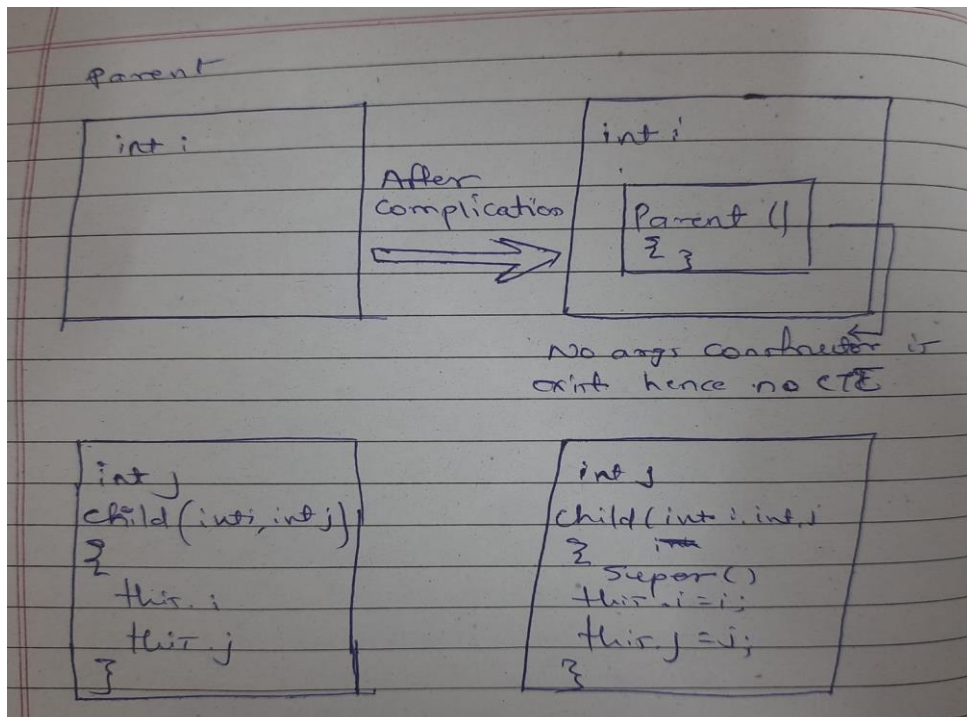 Parent
int i
After
complication
int i
Parent ()
{ }
No args constructor is
exist hence no CTE
int j
child (int i, int j)
{
this.i
this.j
}
int j
child (int i, int j
{
super()
this.i = i;
this.j = j;
}